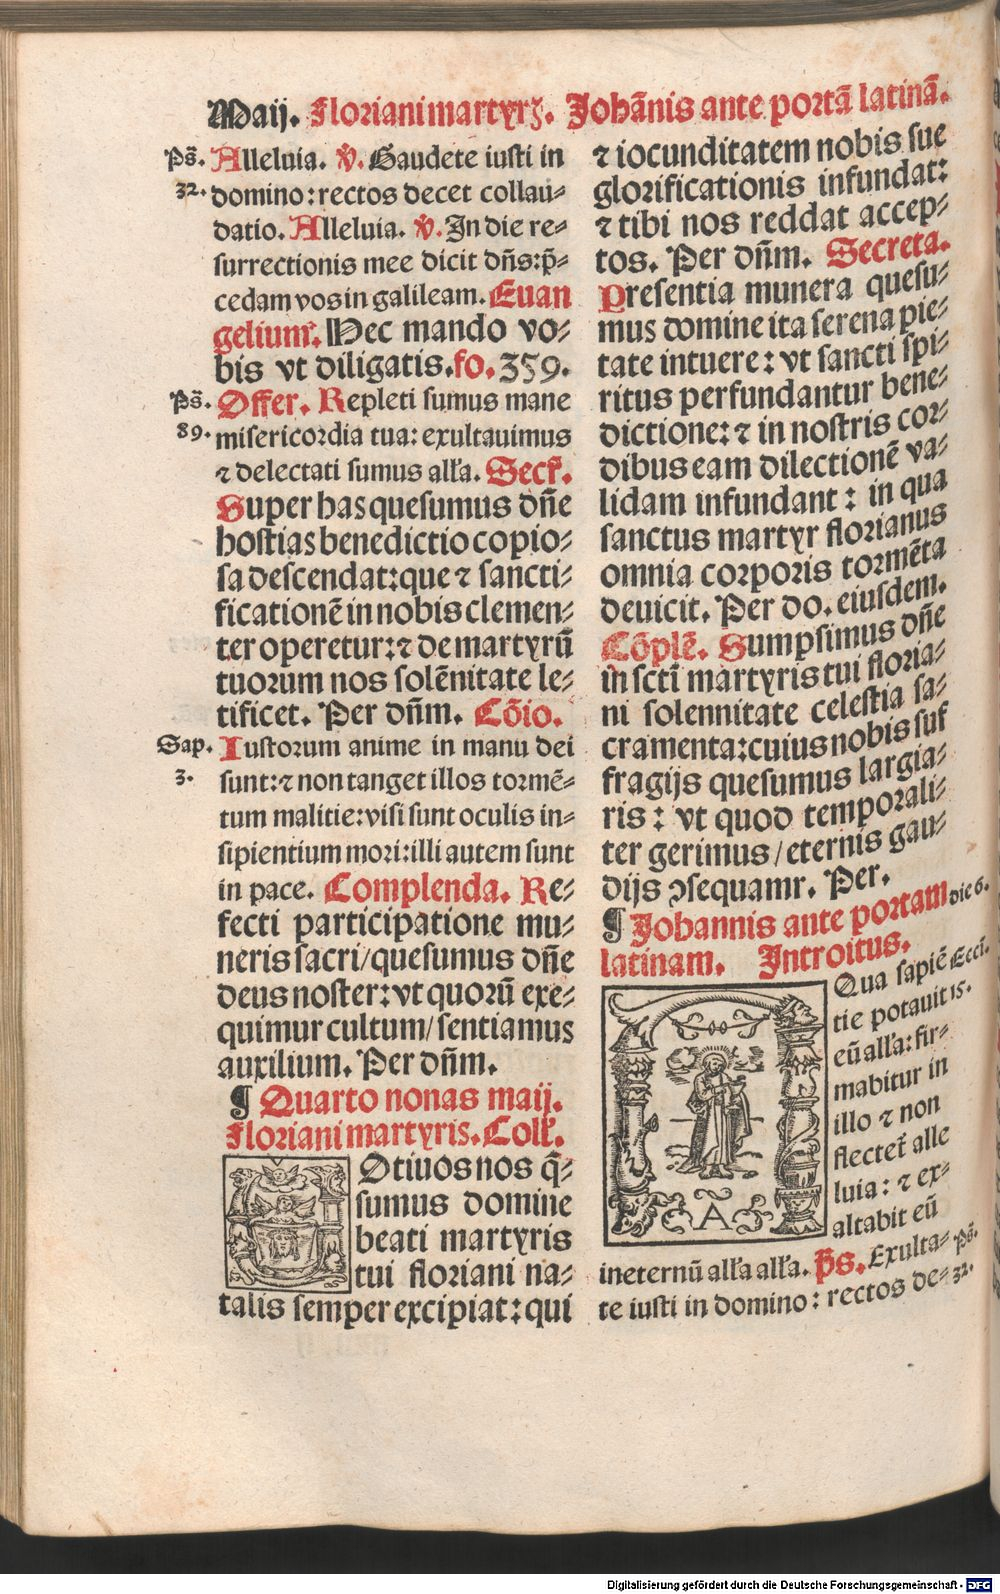 Maij. Floriani martyrꝫ. Johãnis ante portã latinã.
Ps̃. Alleluia. ℣. Gaudete iusti in
32. domino: rectos decet collau⸗
datio. Alleluia. ℣. In die re⸗
surrectionis mee dicit dñs: p̃⸗
cedam vos in galileam. Euan
gelium. Hec mando vo⸗
bis vt diligatis. fo. 359.
Ps̃. Offer. Repleti sumus mane
89. misericordia tua: exultauimus
⁊ delectati sumus alła. Secř.
Super has quesumus dñe
hostias benedictio copio⸗
sa descendat: que ⁊ sancti⸗
ficationẽ in nobis clemen⸗
ter operetur: ⁊ de martyrũ
tuorum nos solẽnitate le⸗
tificet. Per dñm. Cõio.
Sap. Iustorum anime in manu dei
3. sunt: ⁊ non tanget illos tormẽ⸗
tum malitie: visi sunt oculis in⸗
sipientium mori: illi autem sunt
in pace. Complenda. Re⸗
fecti participatione mu⸗
neris sacri/ quesumus dñe
deus noster: vt quorũ exe⸗
quimur cultum/ sentiamus
auxilium. Per dñm.
¶ Quarto nonas maij.
Floriani martyris. Coll̃.
Otiuos nos q̃⸗
sumus domine
beati martyris
tui floriani na⸗
talis semper excipiat: qui
⁊ iocunditatem nobis sue
glorificationis infundat:
⁊ tibi nos reddat accep⸗
tos. Per dñm. Secreta.
Presentia munera quesu⸗
mus domine ita serena pie⸗
tate intuere: vt sancti spi⸗
ritus perfundantur bene⸗
dictione: ⁊ in nostris cor⸗
dibus eam dilectionẽ va⸗
lidam infundant: in qua
sanctus martyr florianus
omnia corporis tormẽta
deuicit. Per do. eiusdem.
Cõplẽ. Sumpsimus dñe
in scti martyris tui floria⸗
ni solennitate celestia sa⸗
cramenta: cuius nobis suf
fragijs quesumus largia⸗
ris: vt quod temporali⸗
ter gerimus/ eternis gau⸗
dijs ꝯsequamr. Per.
¶ Johannis ante portam die 6.
latinam. Introitus.
Qua sapiẽ Ecci.
tie potauit 15.
eũ alła: fir⸗
mabitur in
illo ⁊ non
flectet̃ alle
luia: ⁊ ex⸗
altabit eũ
A
in eternũ alła alła. ps. Exulta⸗ Ps̃.
te iusti in domino: rectos de⸗ 32.
Digitalisierung gefördert durch die Deutsche Forschungsgemeinschaft - DFG